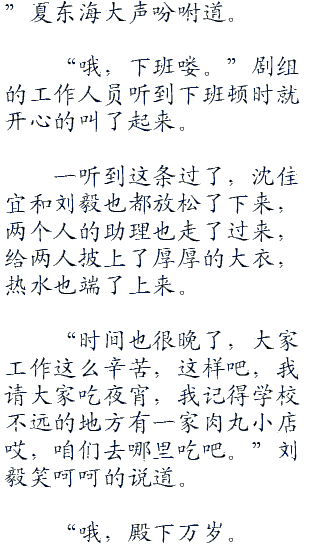 ”夏东海大声吩咐道。
“哦，下班喽。”剧组
的工作人员听到下班顿时就
开心的叫了起来。
一听到这条过了，沈佳
宜和刘毅也都放松了下来，
两个人的助理也走了过来，
给两人披上了厚厚的大衣，
热水也端了上来。
“时间也很晚了，大家
工作这么辛苦，这样吧，我
请大家吃夜宵，我记得学校
不远的地方有一家肉丸小店
哎，咱们去哪里吃吧。”刘
毅笑呵呵的说道。
“哦，殿下万岁。